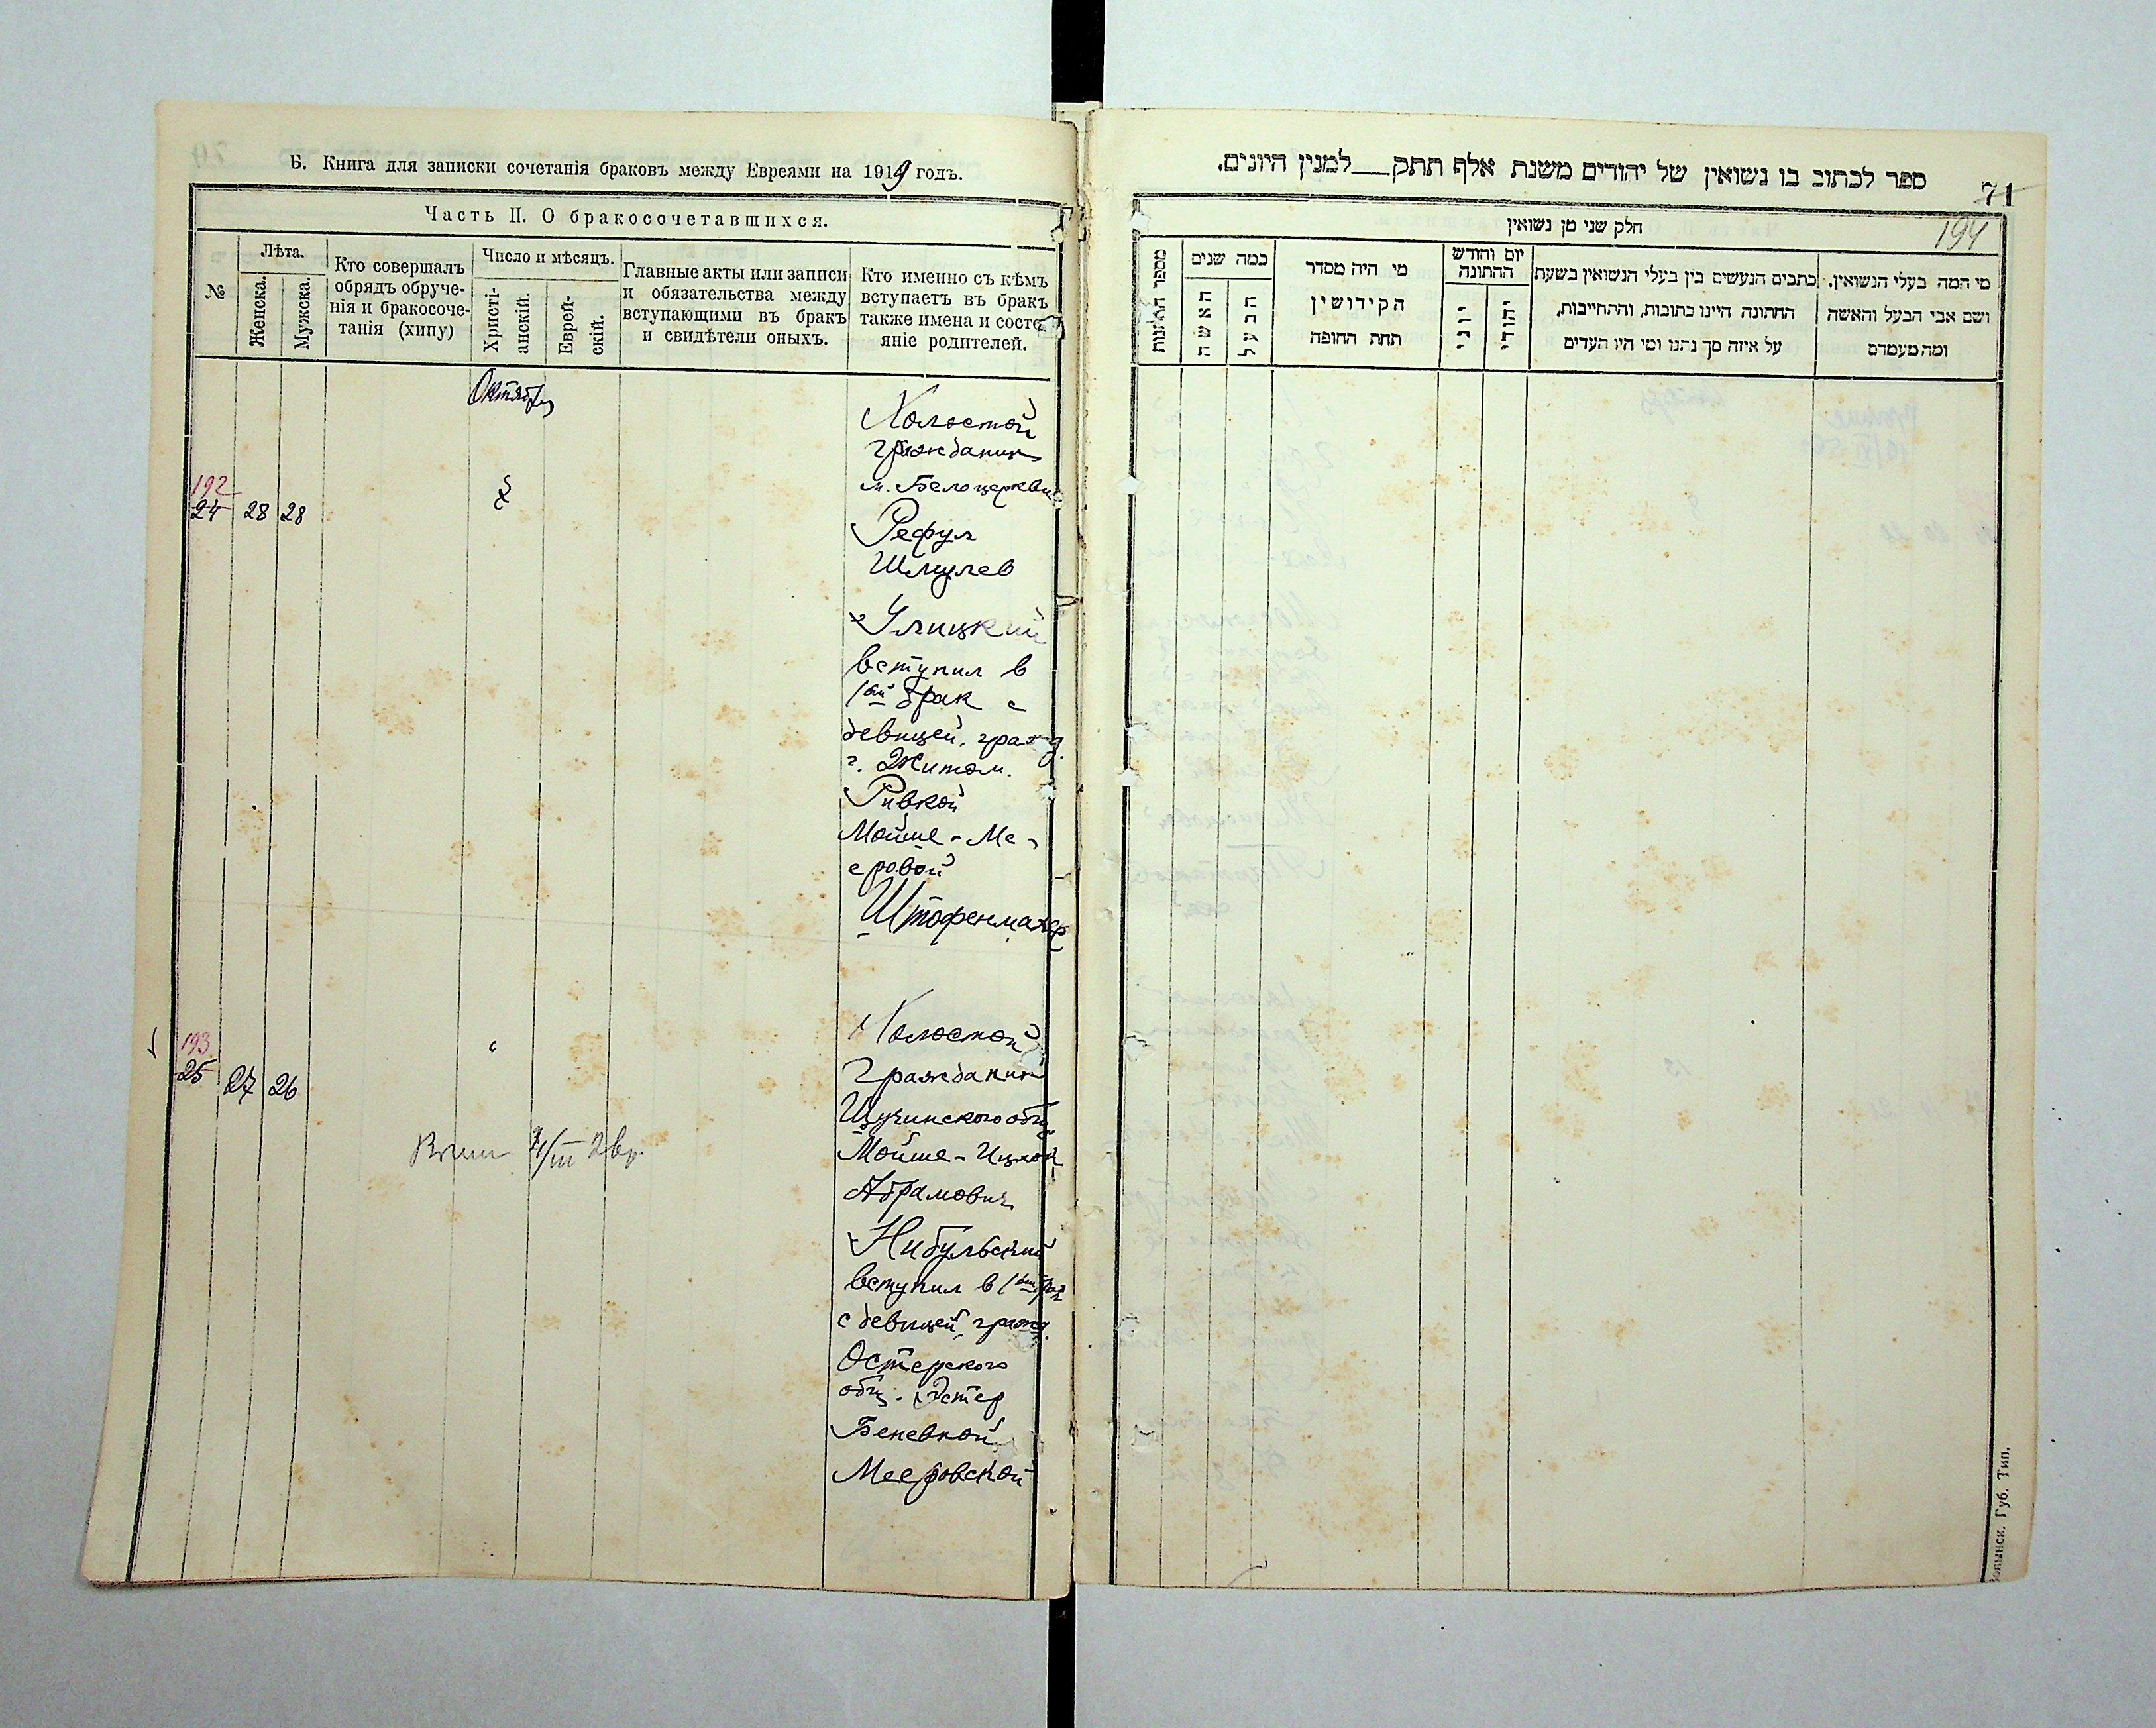 Б. Книга для записки сочетанія браковъ между Евреями на 1919 годъ.
Часть II. О бракосочетавшихся.
№
Лѣта.
Женска.
Мужска.
Кто совершалъ
обрядъ обруче-
нія и бракосоче-
танія (хипу)
Число и мѣсяцъ.
Христі-
анскій.
Еврей-
скій.
Главные акты или записи
и обязательства между
вступающими въ бракъ
и свидѣтели оныхъ.
Кто именно съ кѣмъ
вступаетъ въ бракъ
также имена и состо-
яніе родителей.
Октябрь
192
24 28 28
Холостой
гражданин
м. Белоцеркви
Рефул
Шмулев
Улицкий
вступил в
1ый брак с
девицей, гражд.
г. Житом.
Ривкой
Мойше-Ме-
еровой
Штофенмахер
193
25 27 26
Холостой
Гражданин
Щучинского общ.
Мойше-Ицхок
Абрамович
Нибульский
вступил в 1ый брак
с девицей, гражд.
Остерского
общ. Эстер
Беневной
Мееровской
ספר לכתוב בו נשואין של יהודים משנת אלף תתק___למנין היונים.
71
194
חלק שני מן נשואין
מספר החתונות
כמה שנים
האשה
הבעל
מי היה מסדר
הקידושין
תחת החופה
יום וחודש
החתונה
יוני
יהודי
כתבים הנעשים בין בעלי הנשואין בשעת
החתונה היינו כתובות, והתחייבות,
על איזה סך נתנו ומי היו העדים
מי המה בעלי הנשואין.
ושם אבי הבעל והאשה
ומה מעמדם
Волынск. Губ. Тип.